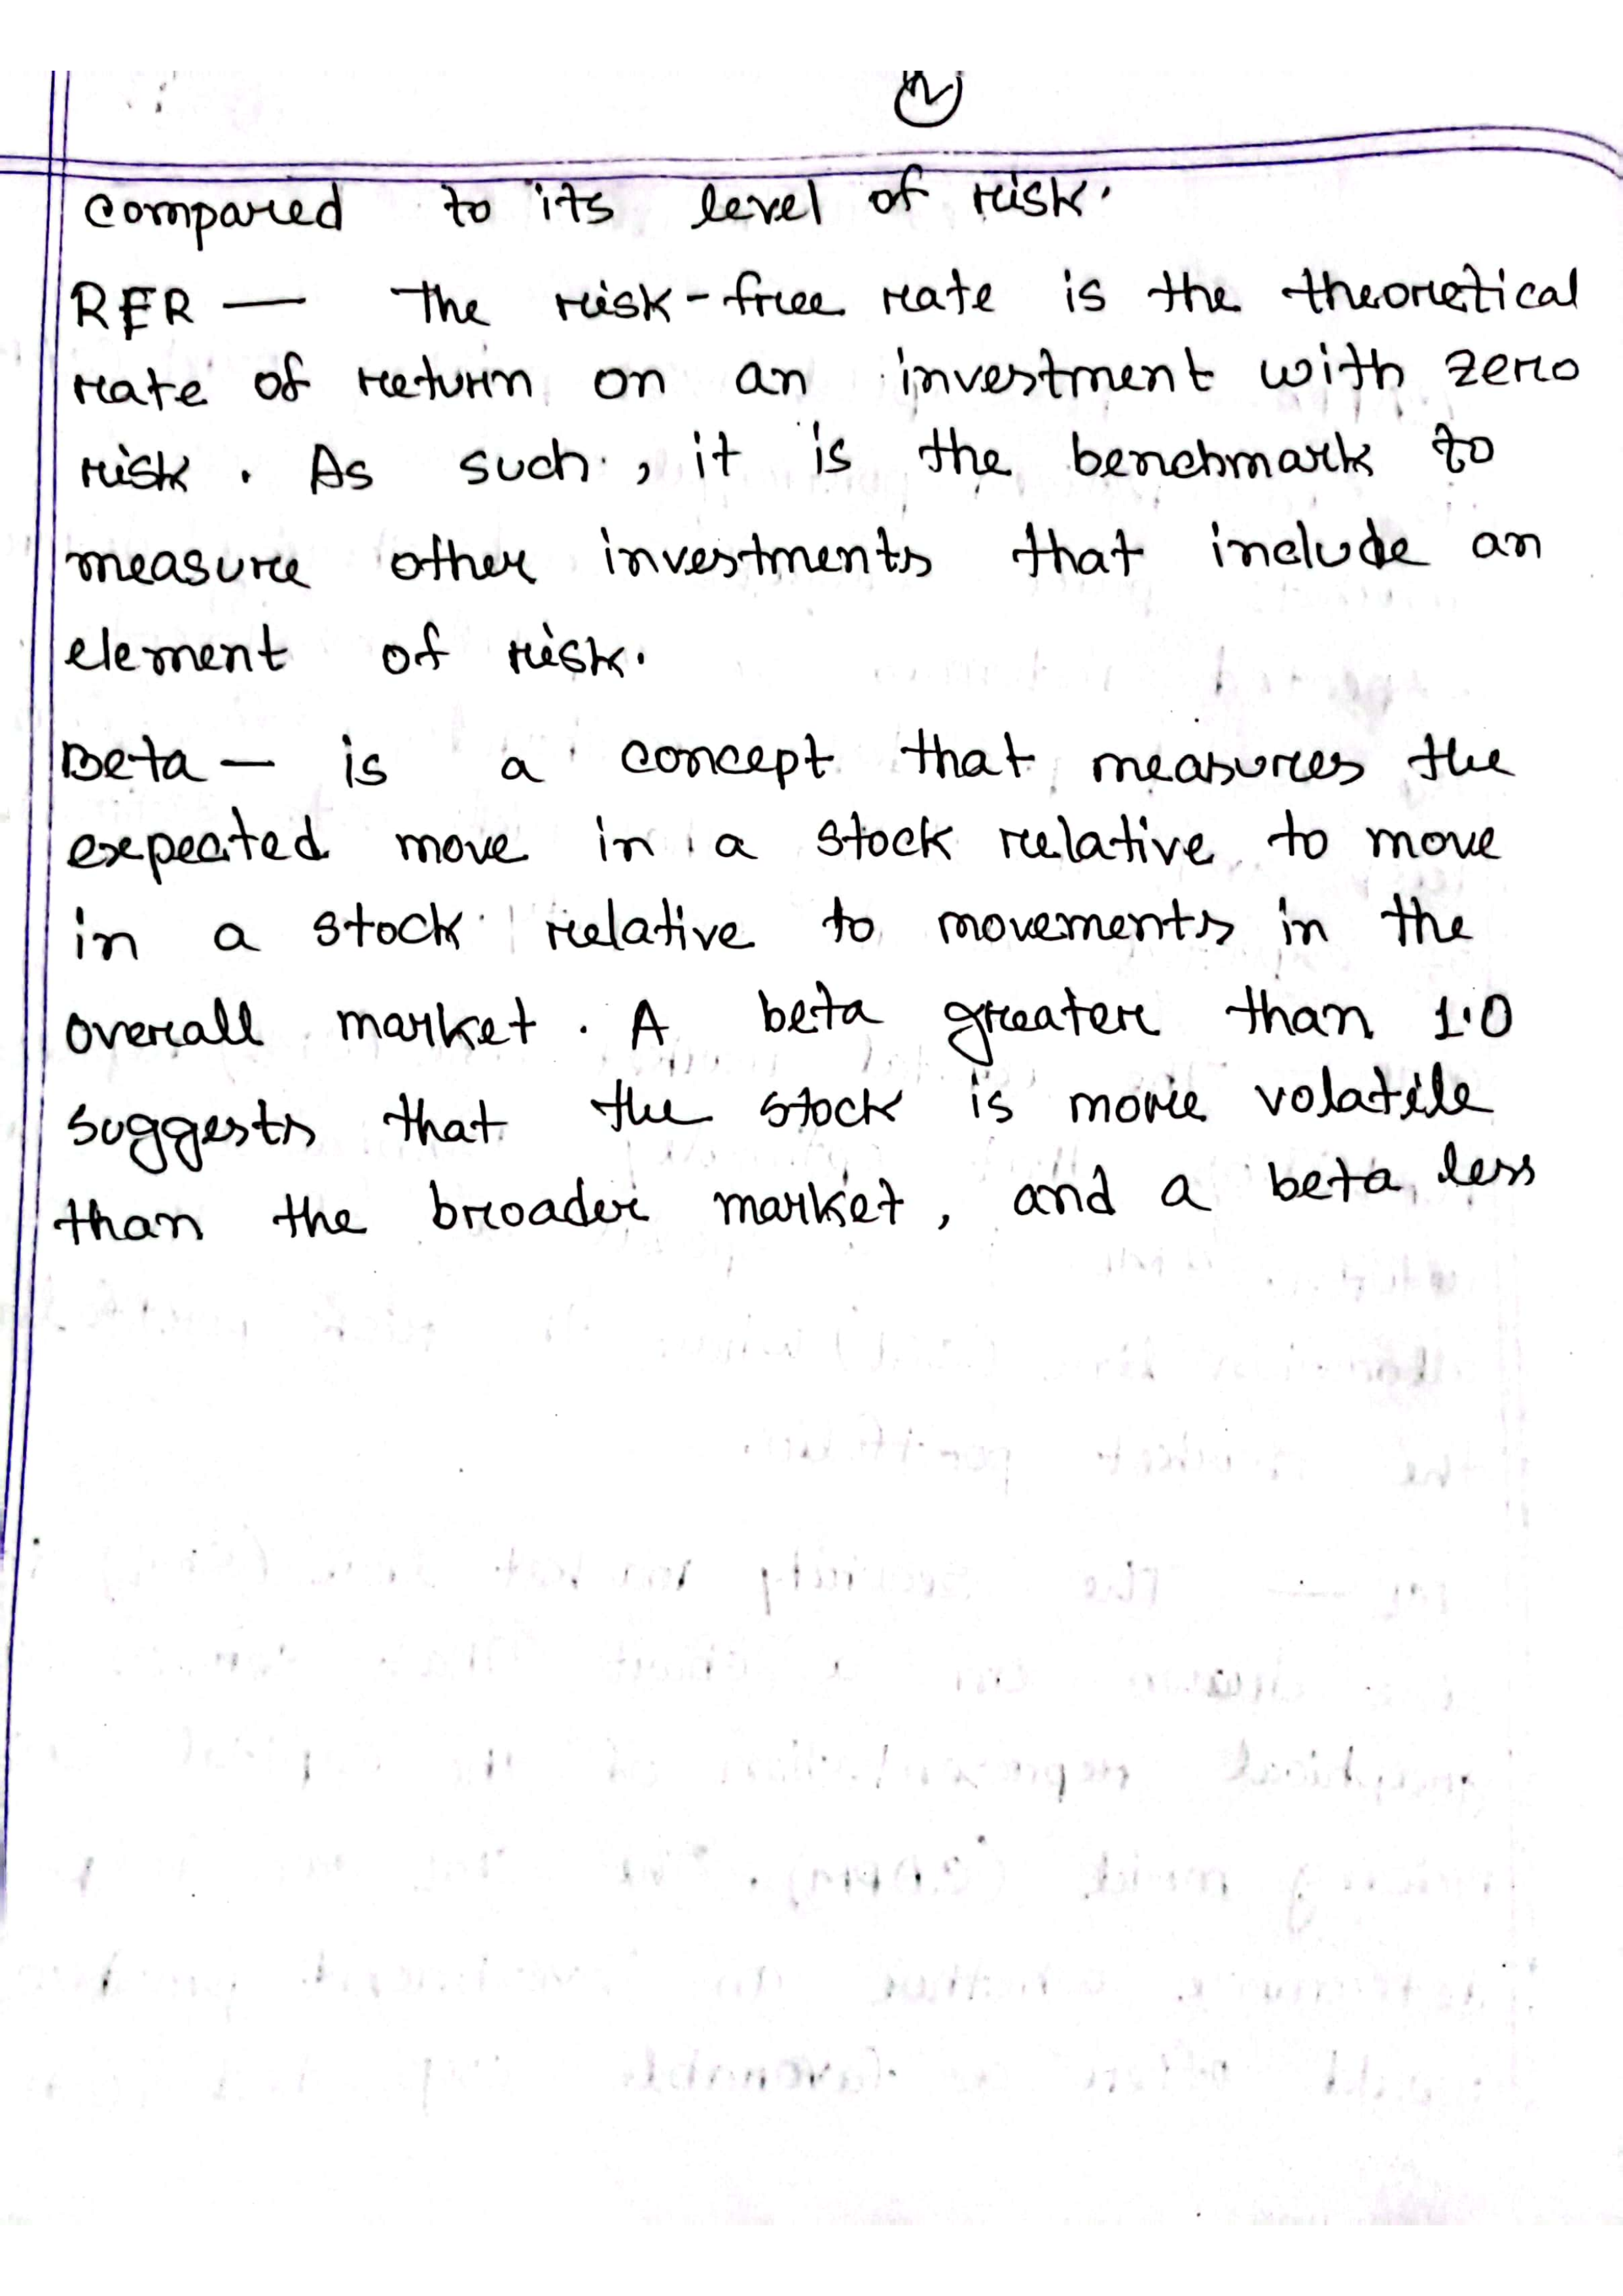 2
compared to its level of risk.
RFR — The risk-free rate is the theoretical
rate of return on an investment with zero
risk. As such, it is the benchmark to
measure other investments that include an
element of risk.
Beta — is a concept that measures the
expected move in a stock relative to move
in a stock relative to movements in the
overall market. A beta greater than 1.0
suggests that the stock is more volatile
than the broader market, and a beta less